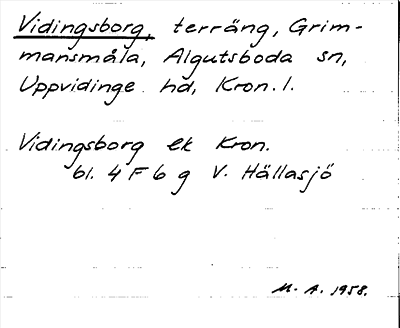 Vidingsborg, terräng, Grim-
mansmåla, Algutsboda sn,
Uppvidinge hd, Kron. l.
Vidingsborg ek Kron.
bl. 4 F 6 g V. Hällasjö
M. A. 1958.